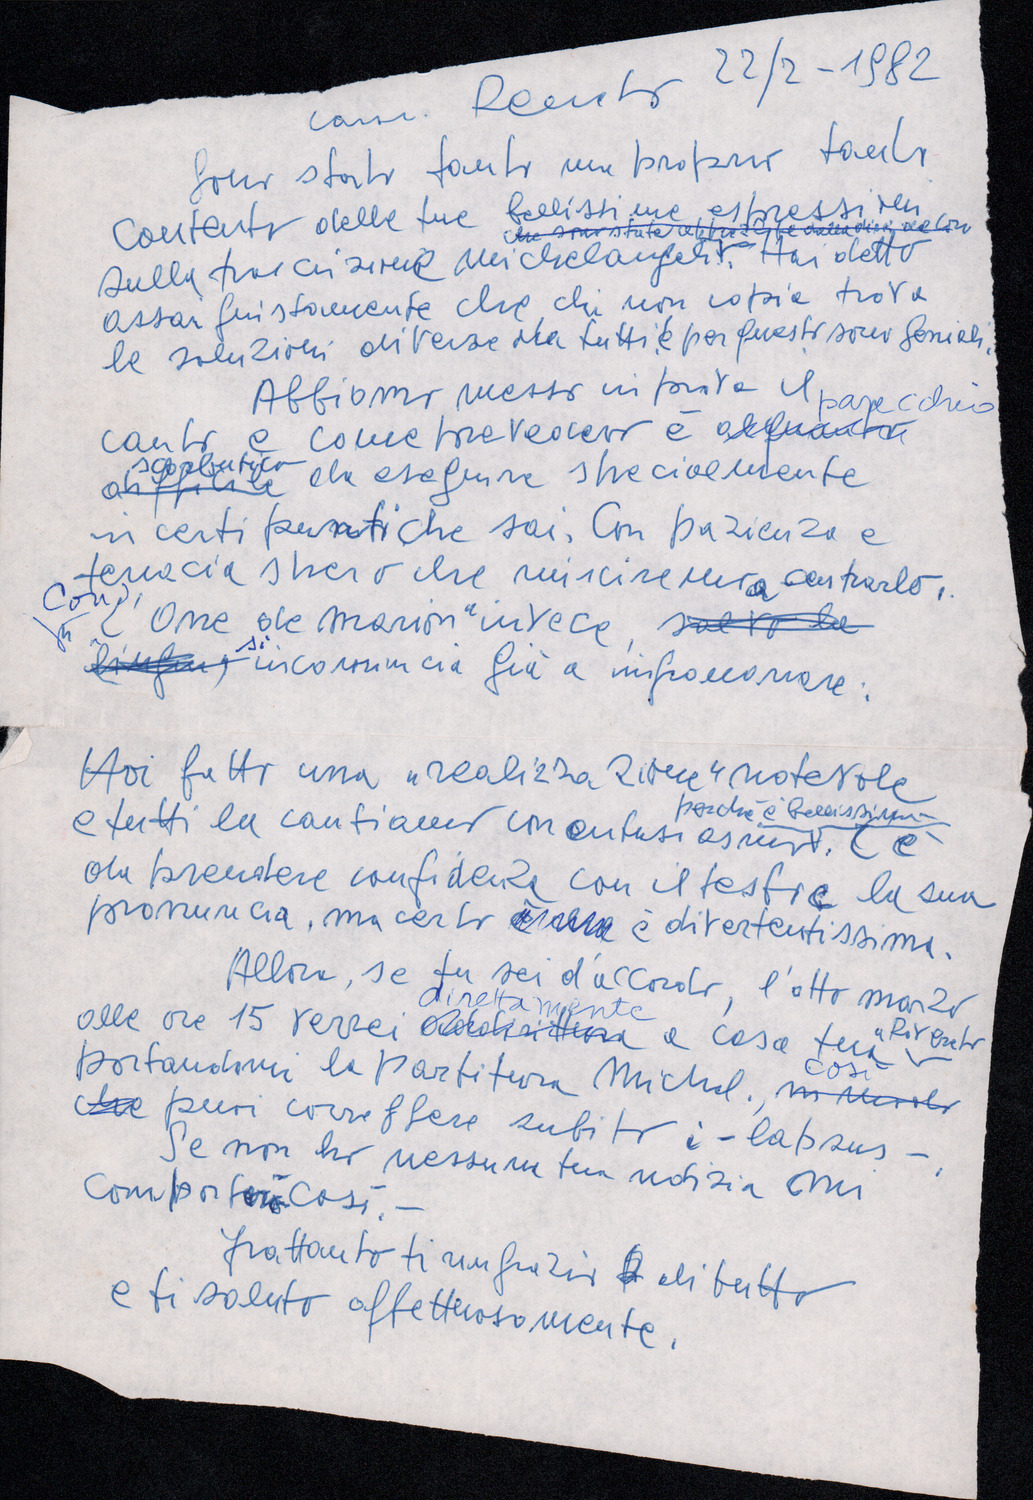 22/2-1982
caro Renato
Sono stato tanto ma proprio tanto
contento delle tue bellissime espressioni
che sono state
sulla trascrizione michelangeli. Hai detto
assai giustamente che chi non copia trova
le soluzioni diverse da tutti e per questo sono geniali.
Abbiamo messo in prova il
parecchio
canto e come prevedevo è alquanto
scorbutico
difficile da eseguire specialmente
in certi punti che sai. Con pazienza e
tenacia spero che riusciremo a centrarlo.
Con
"L'Ome de marion" invece, salvo la
lingua, si incomincia già a ingranare.
Hai fatto una "realizzazione" notevole
perché è bellissima
e tutti la cantiamo con entusiasmo. C'è
da prendere confidenza con il testo e la sua
pronuncia, ma certo è divertentissima.
Allora, se tu sei d'accordo, l'otto marzo
direttamente
alle ore 15 verrei addirittura a casa tua
portandomi la partitura Michel.,
così
in modo
che puoi correggere subito i - lapsus -.
Se non ho nessuna tua notizia mi
comporterò così. -
Frattanto ti ringrazio di tutto
e ti saluto affettuosamente.